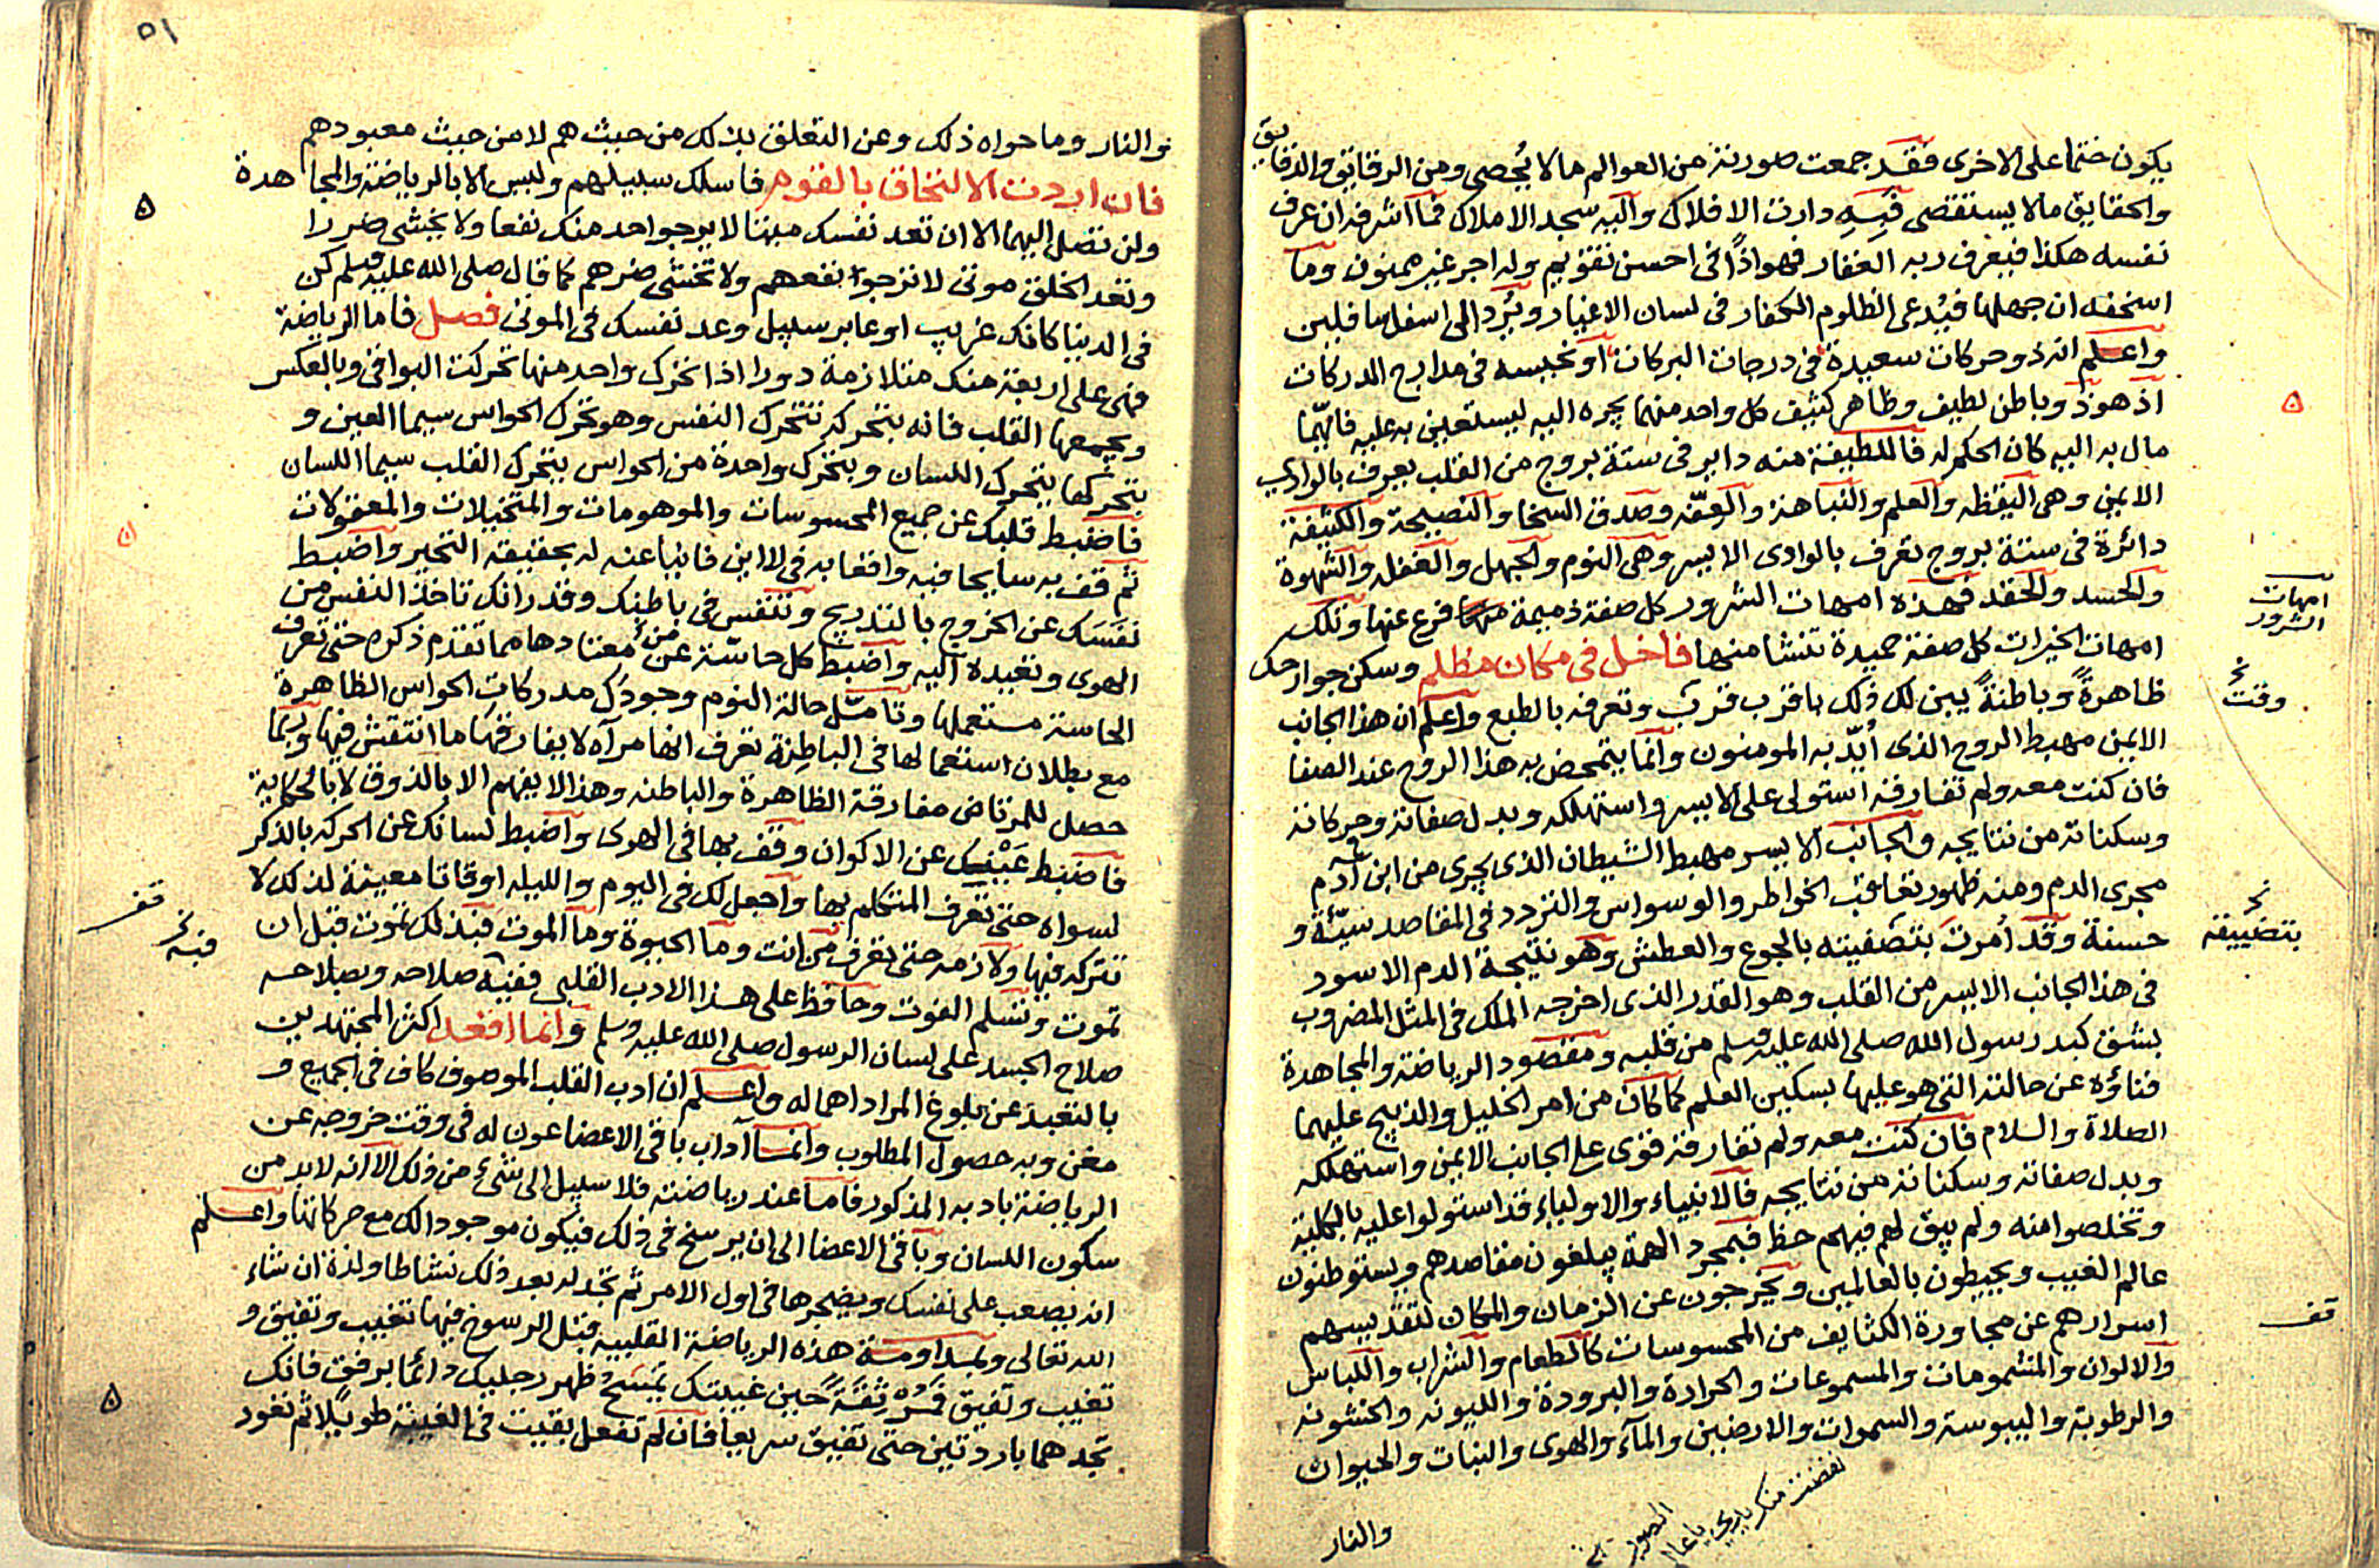 يكون ختما على الاخرى فقد جمعت صورته من العوالم ما لا يُحصى ومن الرقايق والدقايق
والحقايق ما لا يستقصى فبه دارت الافلاك واليه سجد الاملاك فما اشرفه ان عرف
نفسه هكذا فيعرف ربه الغفار فهو اذًا فى احسن تقويم وله اجر غير ممنون وما
اسخفه ان جهلها فيُدعى الظلوم الكفار فى لسان الاغيار ويُرد الى اسفل سافلين
واعلم انه ذو حركات سعيدة فى درجات البركات او نحيسه فى مدارج الدركات
اذ هو ذو باطن لطيف وظاهر كثيف كل واحد منهما يجره اليه ليستعين به عليه فايّهما
مال به اليه كان الحكم له فاللطيفة منه داير فى ستة بروج من القلب يعرف بالوادي
الايمن وهى اليقظه والعلم والنباهة والعفّه وصدق السخا والنصيحة والكثيفة
دائرة فى ستة بروج تعرف بالوادى الايسر وهى النوم والجهل والغفله والشهوة
والحسد والحقد فهذه امهات الشرور كل صفة ذميمة فرع عنها وتلك
امهات الخيرات كل صفة حميدة تنشا منها فاخل فى مكان مظلم وسكن جوارحك
ظاهرةً وباطنةً يبن لك ذلك باقرب قرب وتعرفه بالطبع واعلم ان هذا الجانب
الايمن مهبط الروح الذى أُيّد به المومنون وانما يتمحض به هذا الروح عند الصفا
فان كنت معه ولم تفارقه استولى على الايسر واستهلكه وبدل صفاته وحركاته
وسكناته من نتايجه والجانب الايسر مهبط الشيطان الذى يجرى من ابن آدم
مجرى الدم ومنه ظهور تعاقب الخواطر والوسواس والتردد فى المقاصد سيّئة و
حسنة وقد أُمرت بتصفيته بالجوع والعطش وهو نتيجة الدم الاسود
فى هذا الجانب الايسر من القلب وهو القدر الذى اخرجه الملك فى المثل المضروب
بشق كبد رسول الله صلى الله عليه وسلم من قلبه ومقصود الرياضة والمجاهدة
فناؤه عن حالته التى هو عليها بسكين العلم كما كان من امر الخليل والذبيح عليهما
الصلاة والسلام فان كنت معه ولم تفارقه قوى على الجانب الايمن واستهلكه
وبدل صفاته وسكناته من نتايجه فالانبياء والاولياء قد استولوا عليه بالكلية
وتخلصوا منه ولم يبق لهم فيهم حظ فبمجرد الهمة يبلغون مقاصدهم ويستوطنون
عالم الغيب ويحيطون بالعالمين ويخرجون عن الزمان والمكان لتقديسهم
اسرارهم عن مجاورة الكثايف من المحسوسات كالطعام والشراب واللباس
والالوان والمشمومات والمسموعات والحرارة والبرودة والليونه والخشونه
والرطوبة واليبوسة والسموات والارضين والمآء والهوى والنبات والحيوان
والنار
امهات الشرور
وقت
بتضييقه
قف
٥١
والنار وما حواه ذلك وعن التعلق بذلك من حيث هم لا من حيث معبودهم
فان اردت الالتحاق بالقوم فاسلك سبيلهم وليس الا بالرياضة والمجاهدة
ولن تصل اليهما الا ان تعد نفسك ميتا لا يرجوا حد منك نفعا ولا يخشى ضررا
وتعد الخلق موتى لا ترجوا نفعهم ولا تخشى ضرهم كما قال صلى الله عليه وسلم كن
فى الدنيا كانك غريب او عابر سبيل وعد نفسك فى الموتى فصل فاما الرياضة
فهى على اربعة منك متلازمة دورا اذا تحرك واحد منها تحركت البواقى وبالعكس
ويجمعها القلب فانه بتحركه تتحرك النفس وهو تحرك الحواس سيما العين و
بتحركها يتحرك اللسان وبتحرك واحدة من الحواس يتحرك القلب سيما اللسان
فاضبط قلبك عن جميع المحسوسات والموهومات والمتخيلات والمعقولات
ثم قف به سايحا فيه واقفا به فى لا اين فانيا عنه له بحقيقة التحير واضبط
نفَسَك عن الخروج بالتدريج وتتنفس فى باطنك وقدر انك تاخذ النفس من
الهوى وتعيده اليه واضبط كل حاسّة عن معتادها مما تقدم ذكره حتى تعرف
الحاسة مستعملها وتامّل حالة النوم وجودك مدركات الحواس الظاهرة
مع بطلان استعمالها فى الباطنة تعرف انها مرآه لا يفارقها ما انتقش فيها وربما
حصل للمرتاض مفارقة الظاهرة والباطنه وهذا لا يفهم الا بالذوق لا بالحكاية
فاضبط عَيْنيك عن الاكوان وقف بها فى الهوى واضبط لسانك عن الحركه بالذكر
لسواه حتى تعرف المتكلم بها واجعل لك فى اليوم والليله اوقاتا معينة لذلك لا
تتركه فيها ولازمه حتى تعرف من انت وما الحيوة وما الموت فبذلك تموت قبل ان
تموت وتسلم الفوت وحافظ على هذا الادب القلبى ففيه صلاحه وبصلاحه
صلاح الجسد على لسان الرسول صلى الله عليه وسلم وانما اقعد اكثر المجتهدين
بالتعبد عن بلوغ المراد اهماله واعلم ان ادب القلب الموصوف كاف فى الجميع و
مغن وبه حصول المطلوب وانما آداب باقى الاعضا عون له فى وقت خروجه عن
الرياضة بادبه المذكور فاما عند رياضته فلا سبيل الى شىء من ذلك الا انه لابد من
سكون اللسان وباقى الاعضا الى ان يرسخ فى ذلك فيكون موجودا لك مع حركاتها واعلم
انه يصعب على نفسك ويضجرها فى اول الامر ثم تجد له بعد ذلك نشاطا ولذة ان شاء
الله تعالى وبمداومة هذه الرياضة القلبيه قبل الرسوخ فيها تغيب وتفيق و
تغيب وتفيق فمُرْ ثِقَةً حين غيبتك يمسح ظهر رجليك دائما برفق فانك
تجدهما باردتين حتى تفيق سريعا فان لم تفعل بقيت فى الغيبة طويلا ثم تعود
قف
فيه